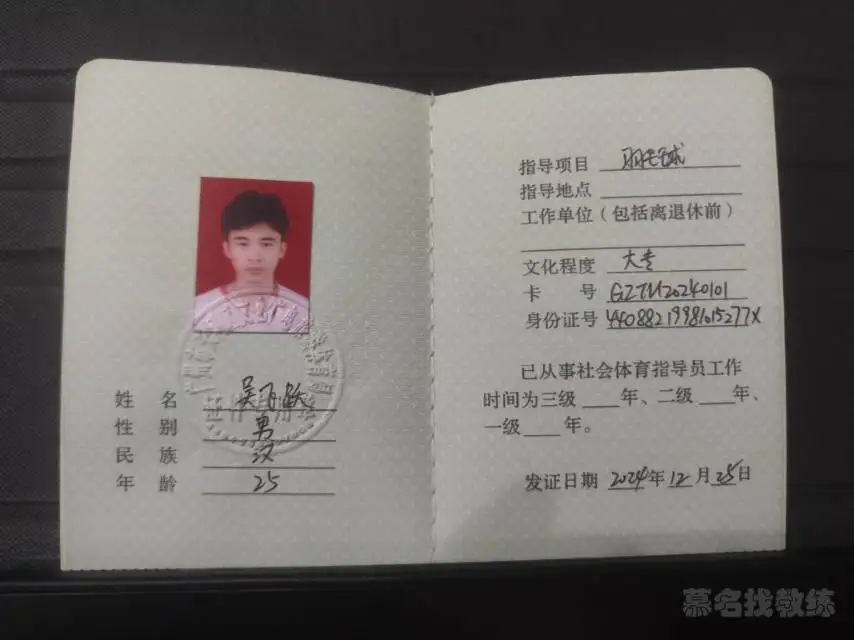 姓 名 吴飞跃
性 别 男
民 族 汉
年 龄 25
指导项目 羽毛球
指导地点
工作单位（包括离退休前）
文化程度 大专
卡 号 GZTY20240101
身份证号
已从事社会体育指导员工作
时间为三级 年、二级 年、
一级 年。
发证日期 2024年12月25日
慕名找教练